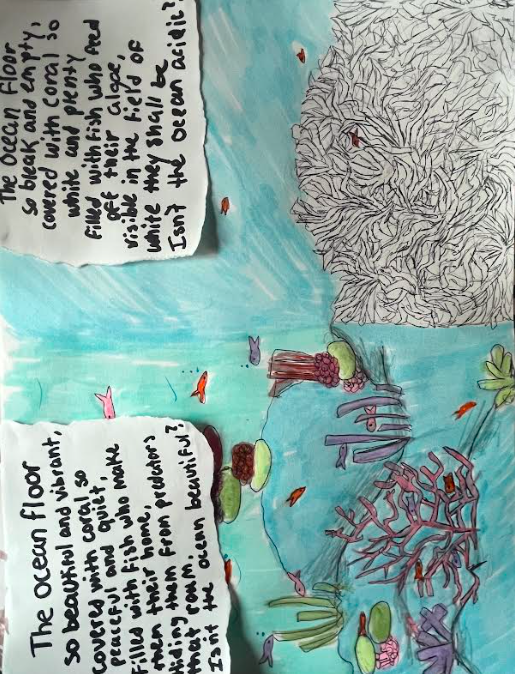 The ocean floor
so beautiful and vibrant,
covered with coral so
peaceful and quiet,
Filled with fish who make
them their home,
Hiding them from predators
that roam.
Isn't the ocean beautiful?
The ocean floor
so bleak and empty,
covered with coral so
white and plenty
Filled with fish who feed
off their algae,
visible in the field of
white they shall be
Isn't the ocean acidic?